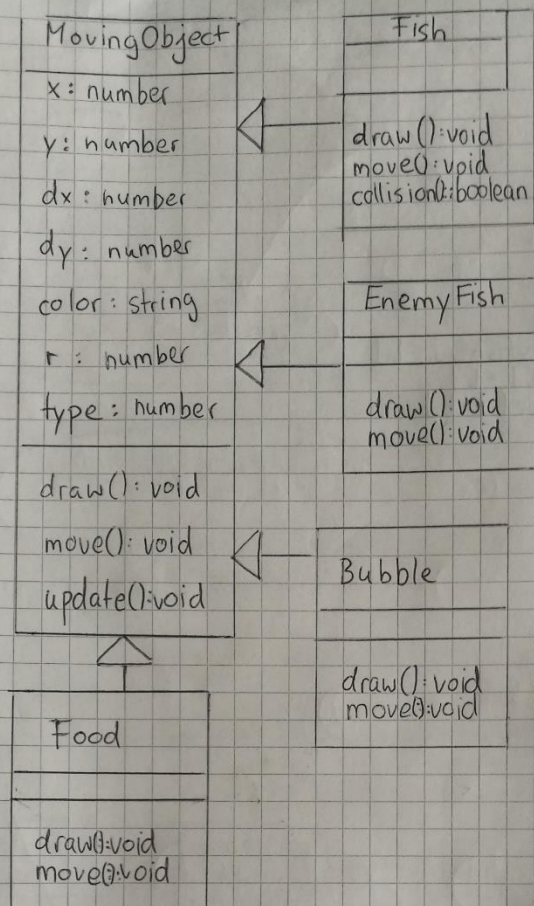 MovingObject
x: number
y: number
dx: number
dy: number
color: string
r: number
type: number
draw(): void
move(): void
update():void
Fish
draw():void
move():void
collision():boolean
EnemyFish
draw():void
move():void
Bubble
draw():void
move():void
Food
draw():void
move():void